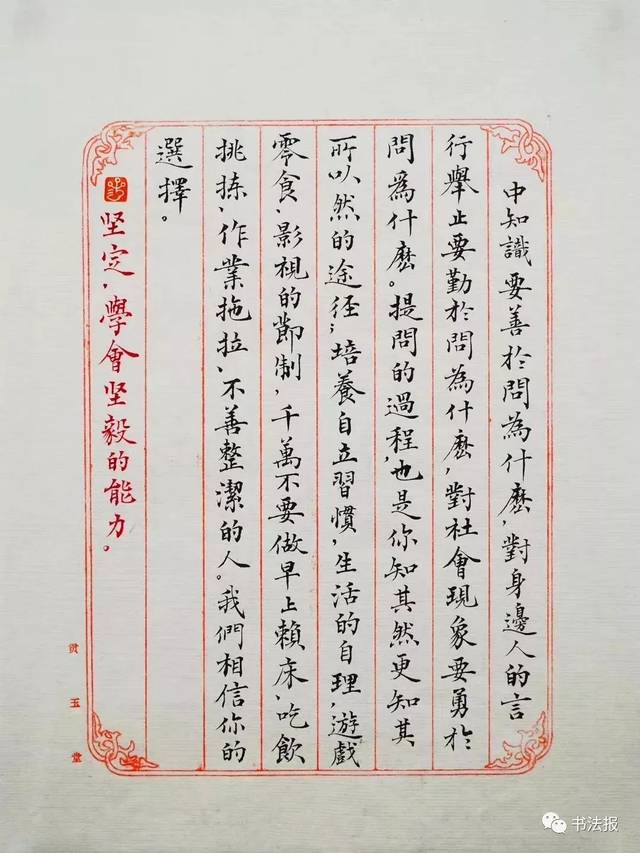 中知識要善於問為什麽，對身邊人的言
行舉止要勤於問為什麽，對社會現象要勇於
問為什麽。提問的過程，也是你知其然更知其
所以然的途径；培養自立習慣，生活的自理，遊戲
零食、影視的節制，千萬不要做早上賴床、吃飲
挑拣、作業拖拉、不善整潔的人。我們相信你的
選擇。
坚定，學會坚毅的能力。
玉堂
书法报